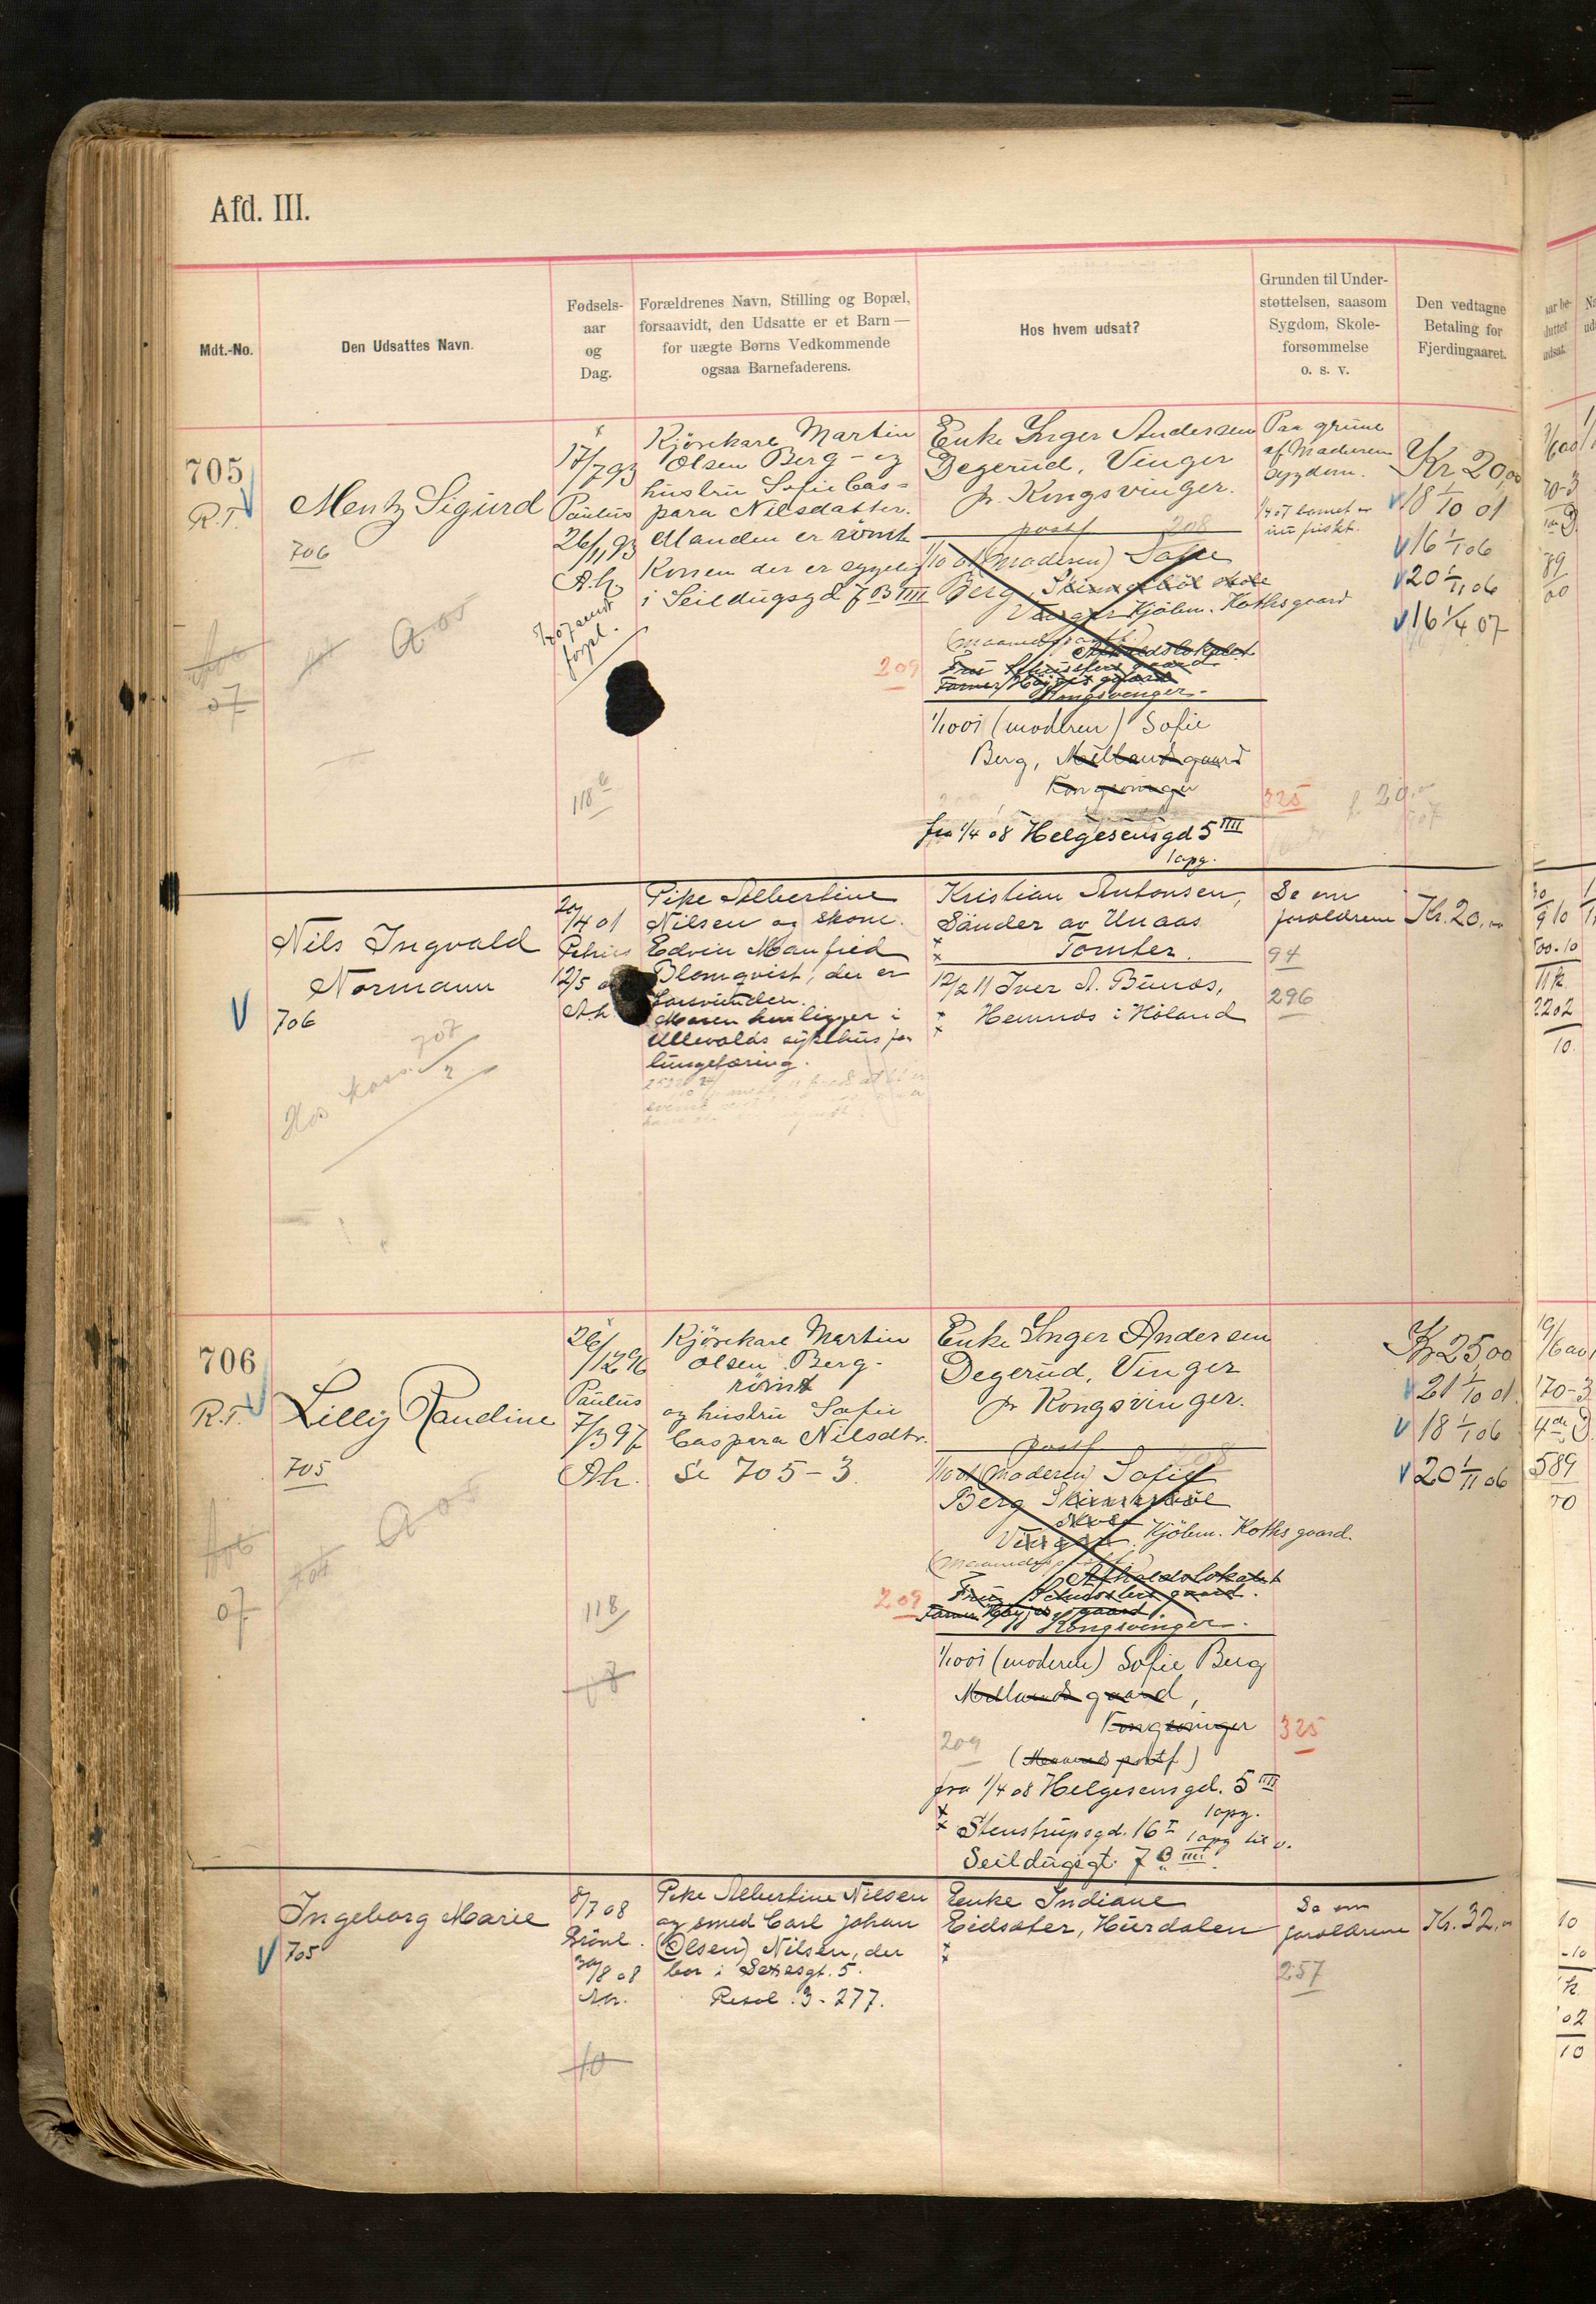 Afd. III.
Mdt.-No.
Den Udsattes Navn.
Fødsels-
aar
og
Dag.
Forældrenes Navn, Stilling og Bopæl,
forsaavidt, den Udsatte er et Barn —
for uægte Børns Vedkommende
ogsaa Barnefaderens.
Hos hvem udsat?
Grunden til Under-
støttelsen, saasom
Sygdom, Skole-
forsømmelse
o. s. v.
Den vedtagne
Betaling for
Fjerdingaaret.
705
R.T.
Mentz Sigurd
706
17/7 93
Paulus
26/11 93
A.h.
Kjørekarl Martin
Olsen Berg - og
hustru Sofie Cas-
para Nilsdatter.
Manden er rømt
Konen der er sygelig
i Seildugsgd 7 B IIII
Enke Inger Andersen
Degerud, Vinger
pr. Kongsvinger.
postf 208
1/10 01 (Moderen) Sofie
Berg, Skinnarbøl skole
Vinger Kjøbm. Kothsgaard
Afholdslokalet
209
Kongsvinger
1/1 001 (moderen) Sofie
Berg, Mellands gaard
Kongsvinger
fra 1/4 08 Helgesensgd 5 IIII
1 opg.
Paa grund
af Moderens
sygdom.
1/4 07 barnet er
nu friskt.
325
Kr 20,00
18 1/10 01
16 1/1 06
20 1/11 06
16 1/4 07
07
118
Nils Ingvald
Normann
706
20/4 01
Petrus
12/5
Ah.
Pike Albertine
Nilsen og skom.
Edvin Manfred
Blomqvist, der er
forsvunden.
Moren ligger i
Ullevolds sykehus for
lungetæring.
Kristian Antonsen,
Sander av Unaas
Tomter.
12/2 11 Iver A. Bunæs,
Hemnes i Høland
Se om
forældrene
94
296
Kr. 20,
706
R.T.
Lilly Paudine
705
26/12 96
Paulus
7/3 97
Ah.
Kjørekarl Martin
Olsen Berg -
rømt
og hustru Sofie
Caspara Nilsdtr.
Se 705 - 3
Enke Inger Andersen
Degerud, Vinger
pr Kongsvinger.
postf
1/10 01 (Moderen) Sofie
Berg Skinnarbøl
skole
Vinger. Kjøbm. Koths gaard.
Afholdslokalet
209
Kongsvinger.
1/1 001 (moderen) Sofie Berg
Mellands gaard,
Kongsvinger
209
(Maaneds postf)
325
fra 1/4 08 Helgesens gd. 5 IIII
1 opg.
Stenstrupsgd. 16 I 1 opg til v.
Seildugsgt. 7 B IIII.
Kr 25 00
21 1/10 01
18 1/1 06
20 1/11 06
07
118
Ingeborg Marie
705
8/7 08
Grønl.
30/8 08
Ah.
Pike Albertine Nilsen
og smed Carl Johan
(Olsen) Nilsen, der
bor i
Resol. 3 - 277.
Enke Indiane
Eidsæter, Hurdalen
Se om
forældrene
257
Kr. 32,
10